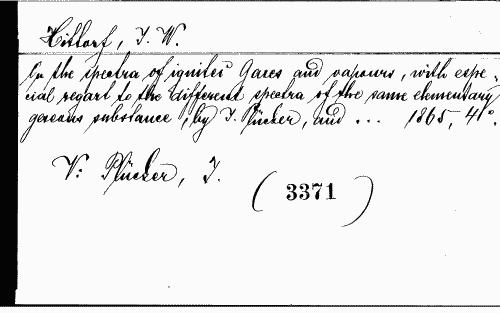 Hittorf, J. W.
On the spectra of ignites Gases and vapours, with espe-
cial regart to the different spectra of the same elementary
gaseous substance, by J. Plücker, and ... 1865, 4°.
V: Plücker, J.
(3371)